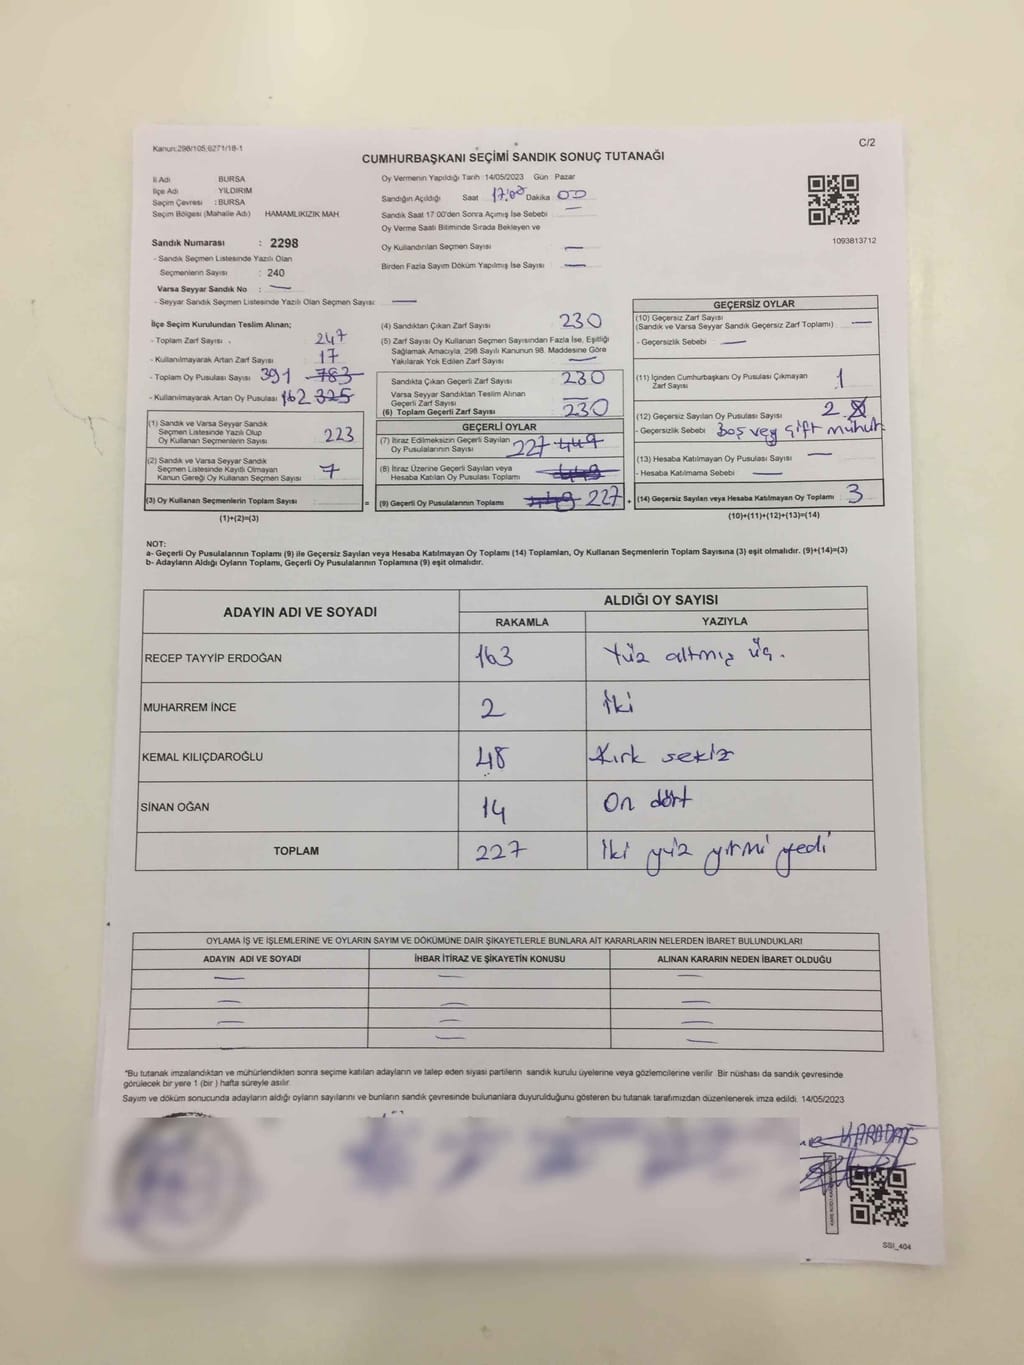 Kanun:298/105,6271/18-1
C/2
CUMHURBAŞKANI SEÇİMİ SANDIK SONUÇ TUTANAĞI
İl Adı BURSA
İlçe Adı YILDIRIM
Seçim Çevresi : BURSA
Seçim Bölgesi (Mahalle Adı) HAMAMLIKIZIK MAH.
Sandık Numarası : 2298
- Sandık Seçmen Listesinde Yazılı Olan
Seçmenlerin Sayısı : 240
Varsa Seyyar Sandık No : —
- Seyyar Sandık Seçmen Listesinde Yazılı Olan Seçmen Sayısı: —
Oy Vermenin Yapıldığı Tarih :14/05/2023 Gün Pazar
Sandığın Açıldığı Saat 17:00 Dakika 00
Sandık Saat 17.00'den Sonra Açımış İse Sebebi —
Oy Verme Saati Bitiminde Sırada Bekleyen ve
Oy Kullandırılan Seçmen Sayısı —
Birden Fazla Sayım Döküm Yapılmış İse Sayısı —
1093813712
İlçe Seçim Kurulundan Teslim Alınan;
- Toplam Zarf Sayısı 247
- Kullanılmayarak Artan Zarf Sayısı 17
- Toplam Oy Pusulası Sayısı 391 783
- Kullanılmayarak Artan Oy Pusulası 162 325
(1) Sandık ve Varsa Seyyar Sandık
Seçmen Listesinde Yazılı Olup
Oy Kullanan Seçmenlerin Sayısı 223
(2) Sandık ve Varsa Seyyar Sandık
Seçmen Listesinde Kayıtlı Olmayan
Kanun Gereği Oy Kullanan Seçmen Sayısı 7
(3) Oy Kullanan Seçmenlerin Toplam Sayısı =
(1)+(2)=(3)
(4) Sandıktan Çıkan Zarf Sayısı 230
(5) Zarf Sayısı Oy Kullanan Seçmen Sayısından Fazla İse, Eşitliği
Sağlamak Amacıyla, 298 Sayılı Kanunun 98. Maddesine Göre
Yakılarak Yok Edilen Zarf Sayısı —
Sandıkta Çıkan Geçerli Zarf Sayısı 230
Varsa Seyyar Sandıktan Teslim Alınan
Geçerli Zarf Sayısı —
(6) Toplam Geçerli Zarf Sayısı 230
GEÇERLİ OYLAR
(7) İtiraz Edilmeksizin Geçerli Sayılan
Oy Pusulalarının Sayısı 227 449
(8) İtiraz Üzerine Geçerli Sayılan veya
Hesaba Katılan Oy Pusulası Toplamı
(9) Geçerli Oy Pusulalarının Toplamı 227 +
GEÇERSİZ OYLAR
(10) Geçersiz Zarf Sayısı
(Sandık ve Varsa Seyyar Sandık Geçersiz Zarf Toplamı) —
- Geçersizlik Sebebi —
(11) İçinden Cumhurbaşkanı Oy Pusulası Çıkmayan
Zarf Sayısı 1
(12) Geçersiz Sayılan Oy Pusulası Sayısı 2
- Geçersizlik Sebebi Boş vey çift mühür
(13) Hesaba Katılmayan Oy Pusulası Sayısı —
- Hesaba Katılmama Sebebi —
(14) Geçersiz Sayılan veya Hesaba Katılmayan Oy Toplamı 3
(10)+(11)+(12)+(13)=(14)
NOT:
a- Geçerli Oy Pusulalarının Toplamı (9) ile Geçersiz Sayılan veya Hesaba Katılmayan Oy Toplamı (14) Toplamları, Oy Kullanan Seçmenlerin Toplam Sayısına (3) eşit olmalıdır. (9)+(14)=(3)
b- Adayların Aldığı Oyların Toplamı, Geçerli Oy Pusulalarının Toplamına (9) eşit olmalıdır.
ADAYIN ADI VE SOYADI ALDIĞI OY SAYISI
RAKAMLA YAZIYLA
RECEP TAYYİP ERDOĞAN 163 Yüz altmış üç.
MUHARREM İNCE 2 İki
KEMAL KILIÇDAROĞLU 48 Kırk sekiz
SİNAN OĞAN 14 On dört
TOPLAM 227 İki yüz yirmi yedi
OYLAMA İŞ VE İŞLEMLERİNE VE OYLARIN SAYIM VE DÖKÜMÜNE DAİR ŞİKAYETLERLE BUNLARA AİT KARARLARIN NELERDEN İBARET BULUNDUKLARI
ADAYIN ADI VE SOYADI İHBAR İTİRAZ VE ŞİKAYETİN KONUSU ALINAN KARARIN NEDEN İBARET OLDUĞU
— — —
— — —
— — —
— — —
*Bu tutanak imzalandıktan ve mühürlendikten sonra seçime katılan adayların ve talep eden siyasi partilerin sandık kurulu üyelerine veya gözlemcilerine verilir. Bir nüshası da sandık çevresinde
görülecek bir yere 1 (bir ) hafta süreyle asılır.
Sayım ve döküm sonucunda adayların aldığı oyların sayılarını ve bunların sandık çevresinde bulunanlara duyurulduğunu gösteren bu tutanak tarafımızdan düzenlenerek imza edildi. 14/05/2023
KARADAĞ
SSI_404